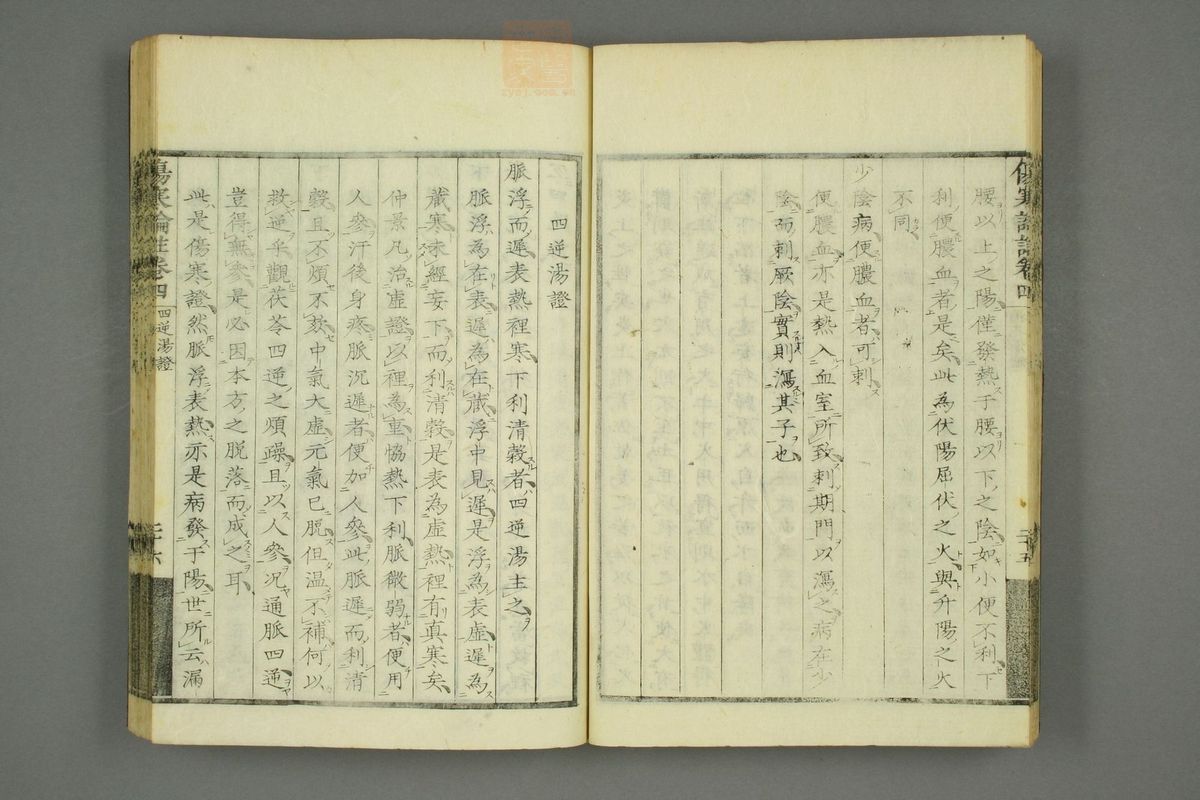 傷寒論註卷四
二十五
腰以上之陽僅發熱于腰以下之陰如小便不利下
利便膿血者是矣此為伏陽屈伏之火與升陽之火
不同
少陰病便膿血者可刺
便膿血亦是熱入血室所致刺期門以瀉之病在少
陰而刺厥陰實則瀉其子也
四逆湯證
脈浮而遲表熱裡寒下利清穀者四逆湯主之
脈浮為在表遲為在藏浮中見遲是浮為表虛遲為
藏寒未經妄下而利清穀是表為虛熱裡有真寒矣
仲景凡治虛證以裡為重恊熱下利脈微弱者便用
人參汗後身疼脈沉遲者便加人參此脈遲而利清
穀且不煩不欬中氣大虛元氣已脫但温不補何以
救逆乎觀茯苓四逆之煩躁且以人參况通脈四逆
豈得無參是必因本方之脫落而成之耳
此是傷寒證然脈浮表熱亦是病發于陽世所云漏
傷寒論註卷四
四逆湯證
二十六